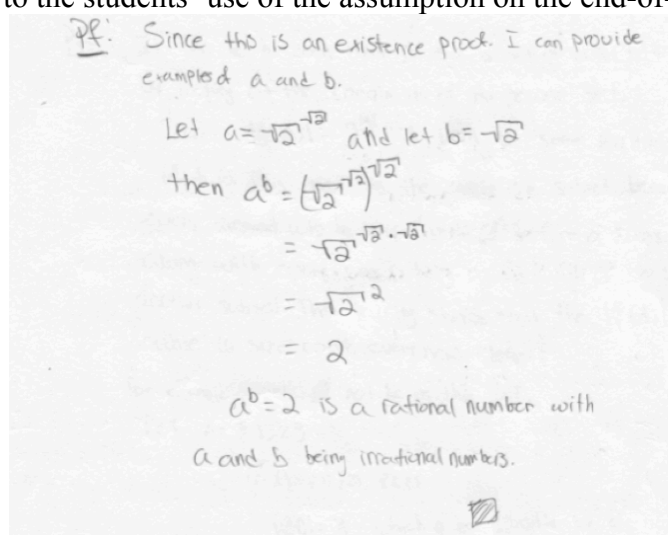 to the students' use of the assumption on the end-of-
Pf: Since ths is an existence proof. I can provide
examples of a and b.
Let a = √2^√2 and let b = √2
then a^b = (√2^√2)^√2
= √2^√2·√2
= √2^2
= 2
a^b = 2 is a rational number with
a and b being irrational numbers.